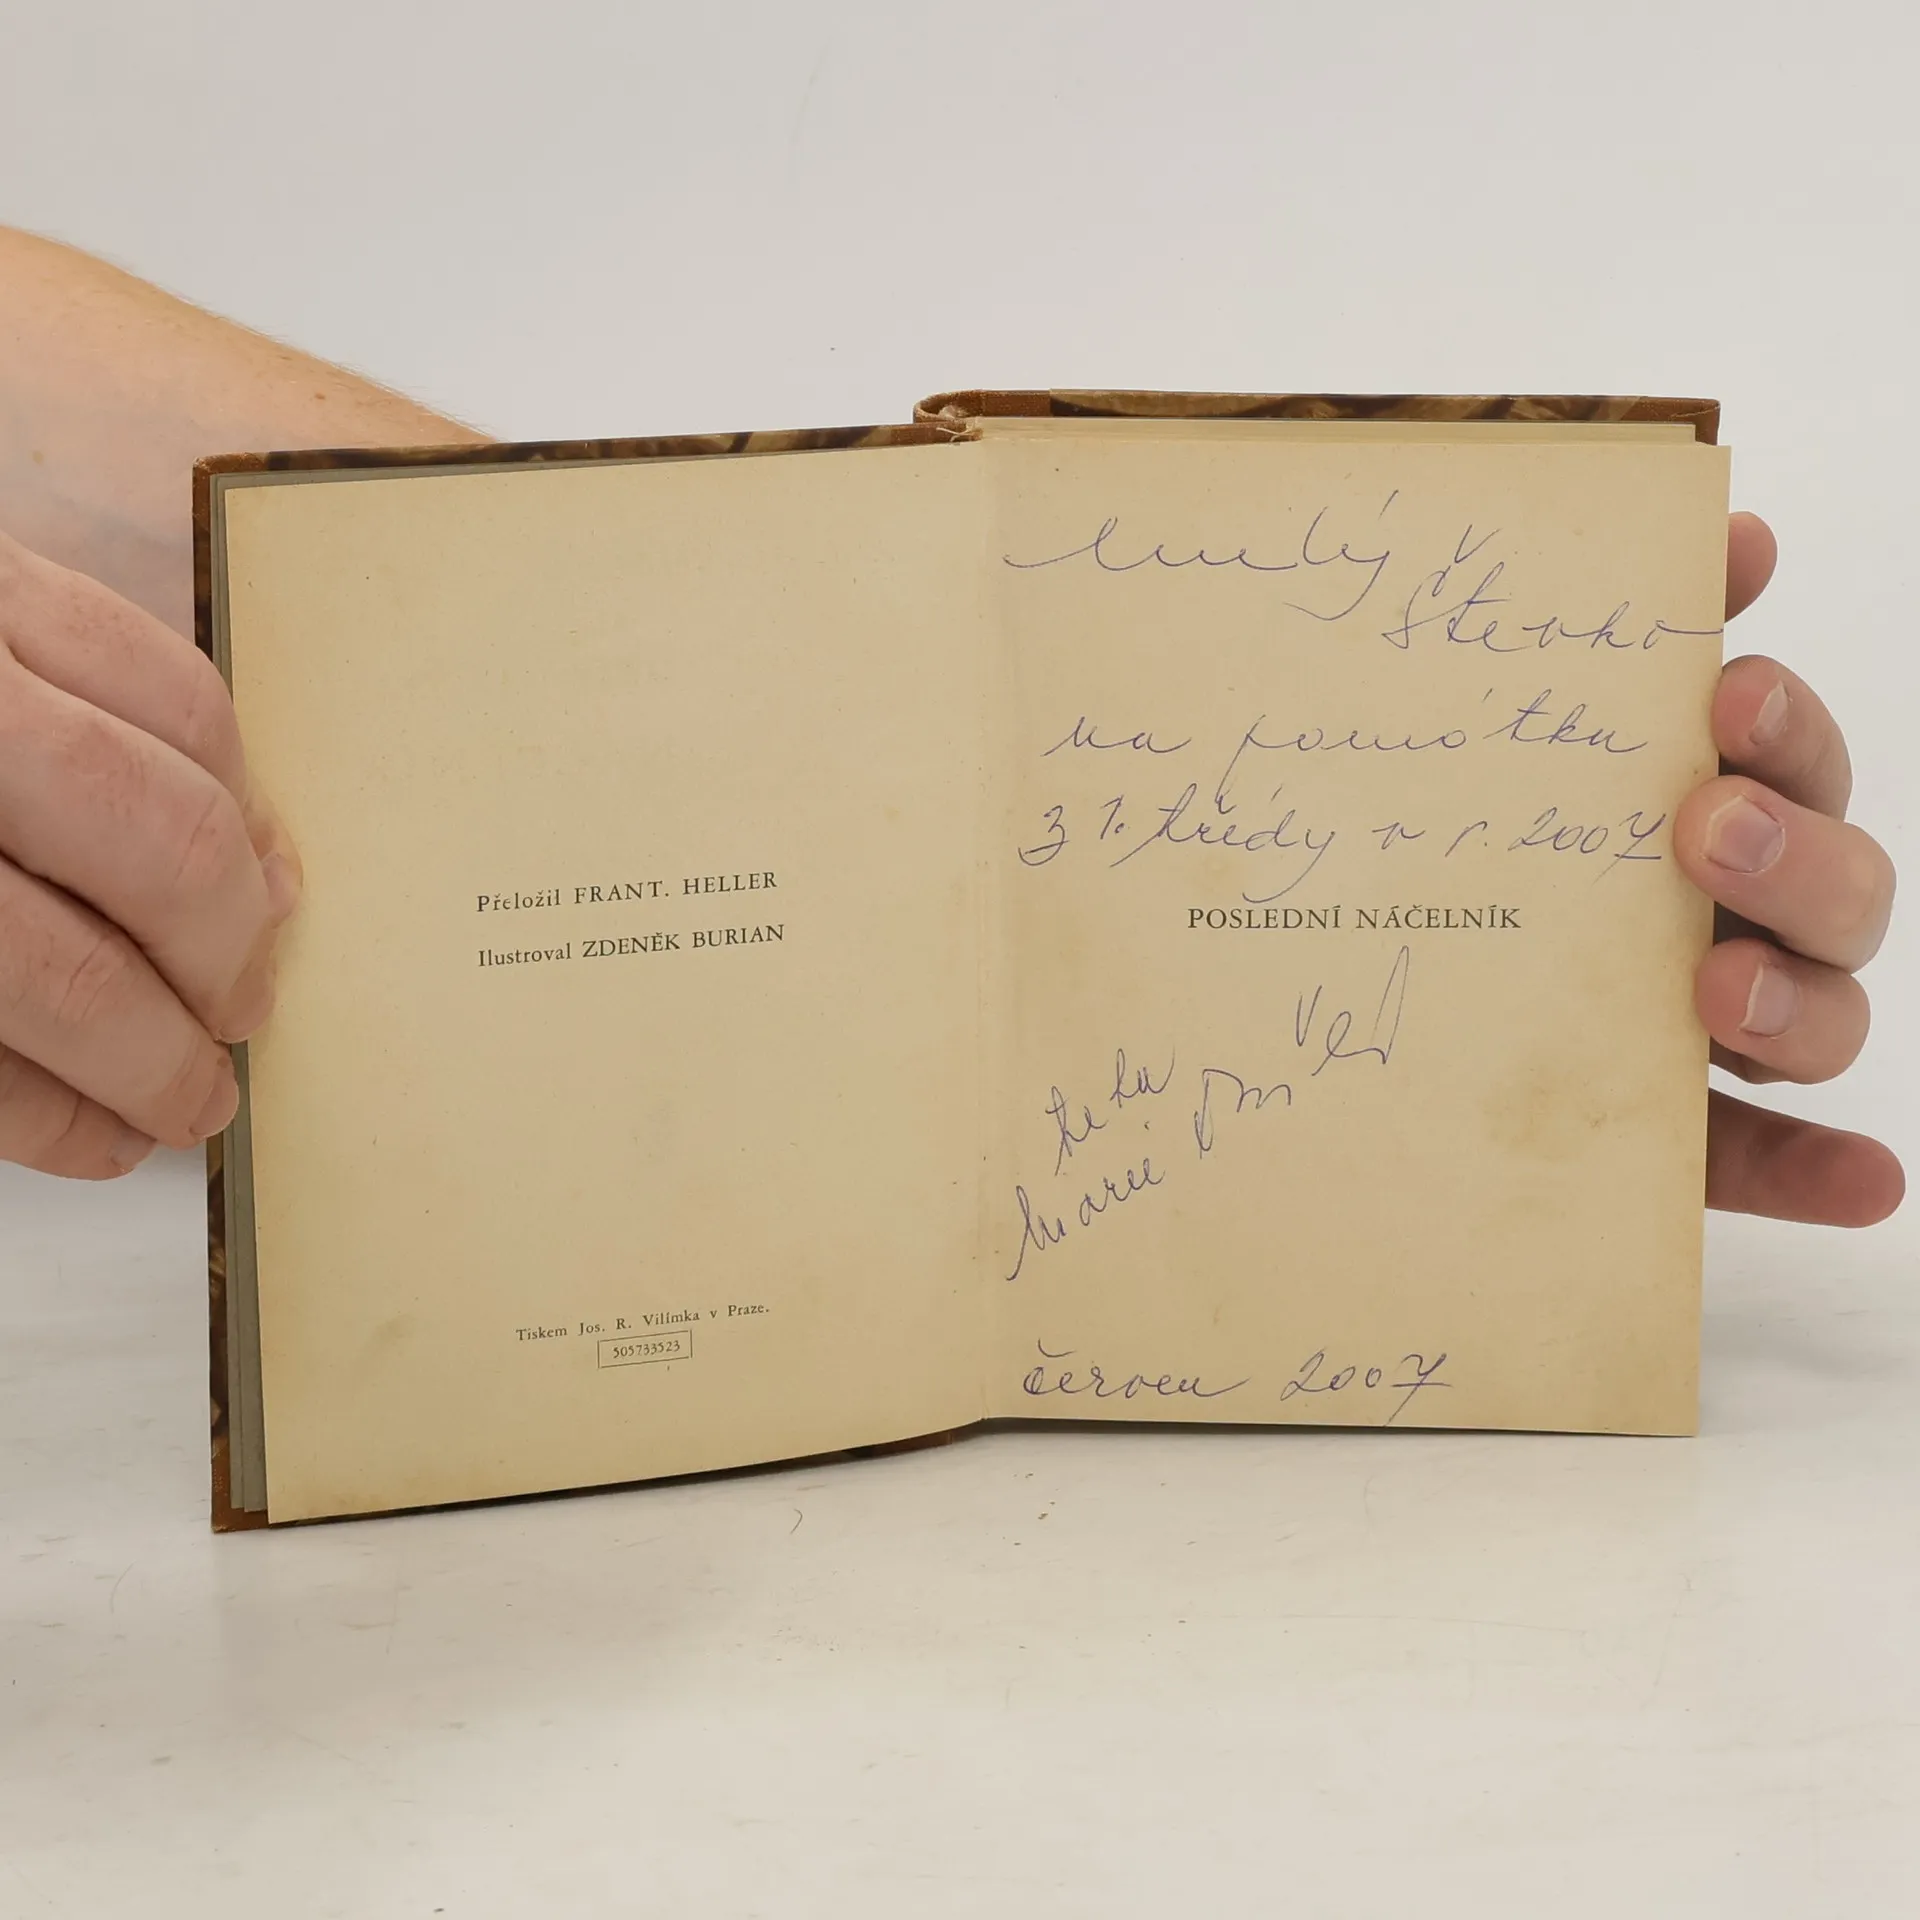 Přeložil FRANT. HELLER
Ilustroval ZDENĚK BURIAN
Tiskem Jos. R. Vilímka v Praze.
505733523
milý
Števko
na pomátku
z 1. třídy v r. 2007
POSLEDNÍ NÁČELNÍK
teta
Marie
červen 2007